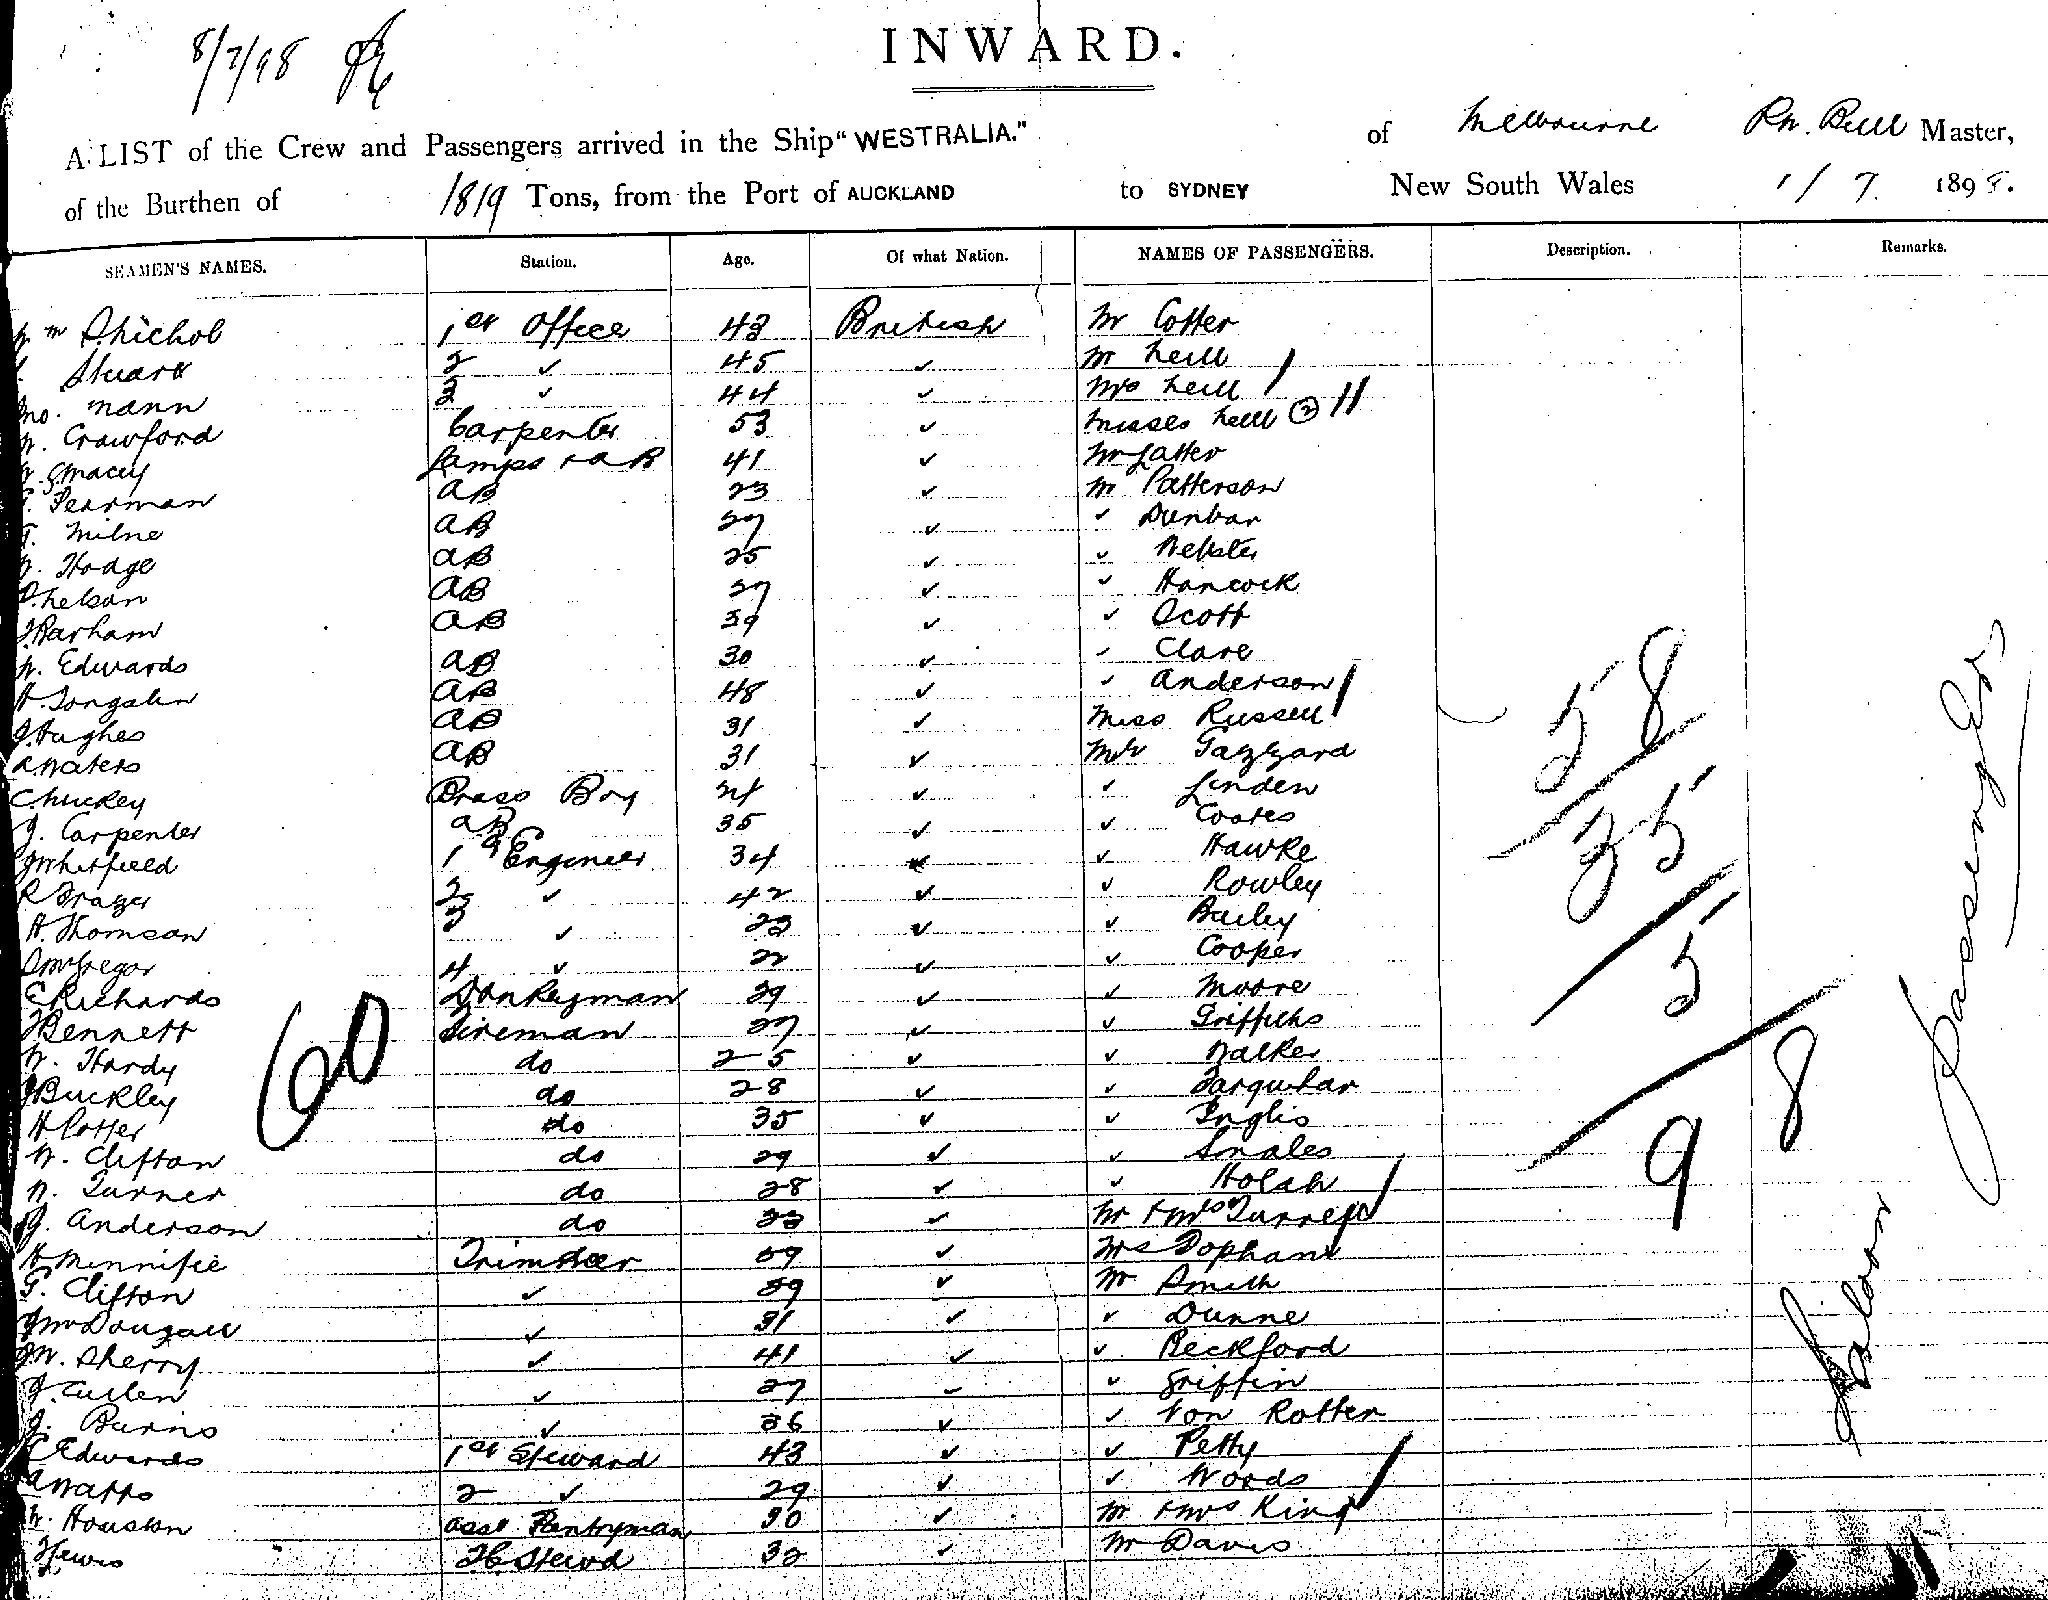 8/7/98
INWARD.
A LIST of the Crew and Passengers arrived in the Ship "WESTRALIA." of Melbourne Rn. Bull Master,
of the Burthen of 1819 Tons, from the Port of AUCKLAND to SYDNEY New South Wales 1/7 1898.
SEAMEN'S NAMES. Station. Age. Of what Nation. NAMES OF PASSENGERS. Description. Remarks.
1st Office 43 British Mr Cotter
Stuart 2 ✓ 45 ✓ Mr Neill
Jno. Mann 3 ✓ 44 ✓ Mrs Neill
W. Crawford Carpenter 53 ✓ Misses Neill (2)
Macey Lamps & AB 41 ✓ Mr Latter
Pearman AB 23 ✓ Mr Patterson
Milne AB 27 ✓ ✓ Dunbar
W. Hodge AB 25 ✓ ✓ Webster
Nelson AB 27 ✓ ✓ Hancock
Parham AB 39 ✓ ✓ Scott
W. Edwards AB 30 ✓ ✓ Clare
AB 48 ✓ ✓ Anderson
J. Hughes AB 31 ✓ Miss Russell
R Waters AB 31 ✓ Mr Gazzard
C. Nuckey Brass Boy ✓ ✓ Linden
J. Carpenter AB 35 ✓ ✓ Coates
J Whitfield 1st Engineer 34 ✓ ✓ Hawke
R Frazer 2 ✓ 42 ✓ ✓ Rowley
A. Thomson 3 ✓ 23 ✓ ✓ Bailey
D McGregor 4 ✓ 22 ✓ ✓ Cooper
E Richards Donkeyman 29 ✓ ✓ Moore
Bennett Fireman 27 ✓ ✓ Griffiths
W. Hardy do 25 ✓ ✓ Walker
J Buckley do 28 ✓ ✓ Farquhar
H Potter do 35 ✓ ✓ Inglis
W. Clifton do 29 ✓ ✓ Smales
W. Turner do 28 ✓ ✓ Holah
J. Anderson do 23 ✓ Mr & Mrs Turrell
H Minnifie Trimmer 29 ✓ Mrs Topham
G. Clifton ✓ 29 ✓ Mr Smith
J McDougall ✓ 31 ✓ ✓ Dunne
J W. Sherry ✓ 41 ✓ ✓ Beckford
J. Cullen ✓ 27 ✓ ✓ Griffin
J. Burns ✓ 26 ✓ ✓ Von Rotter
Edwards 1st Steward 43 ✓ ✓ Petty
A Watts 2 ✓ 29 ✓ ✓ Woods
W. Houston asst Pantryman 30 ✓ Mr & Mrs King
Lewis Stewd 32 ✓ Mr Davis
60
58
35
5
98
Saloon Passengers